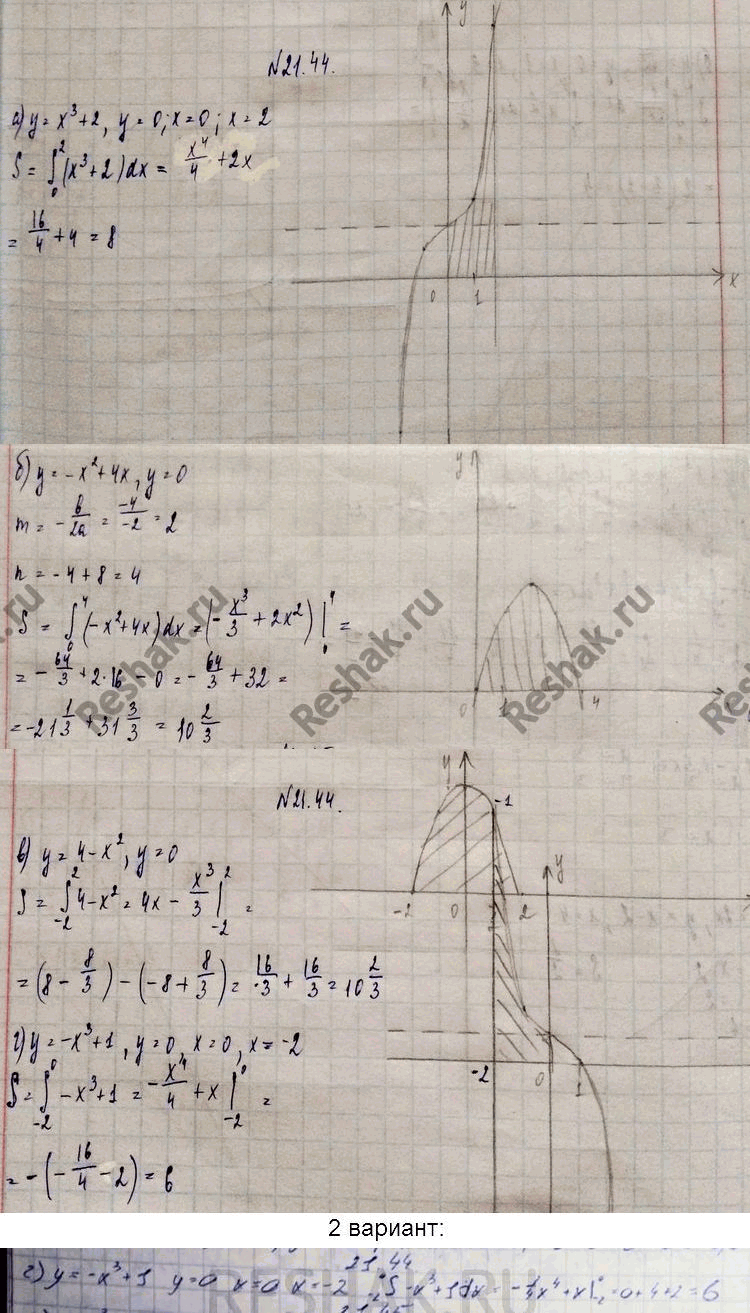 №21.44.
а) y = x³ + 2, y = 0; x = 0; x = 2
S = ∫₀² (x³ + 2) dx = x⁴/4 + 2x
= 16/4 + 4 = 8
y
0 1 x
б) y = -x² + 4x, y = 0
m = -b/2a = -4/-2 = 2
n = -4 + 8 = 4
S = ∫₀⁴ (-x² + 4x) dx = (-x³/3 + 2x²) |₀⁴ =
= -64/3 + 2·16 - 0 = -64/3 + 32 =
= -21 1/3 + 31 3/3 = 10 2/3
y
0 1 4
Reshak.ru
Reshak.ru
Reshak.ru
№21.44.
в) y = 4 - x², y = 0
S = ∫₋₂² 4 - x² = 4x - x³/3 |₋₂² =
= (8 - 8/3) - (-8 + 8/3) = 16/3 + 16/3 = 10 2/3
г) y = -x³ + 1, y = 0, x = 0, x = -2
S = ∫₋₂⁰ -x³ + 1 = -x⁴/4 + x |₋₂⁰ =
= -(-16/4 - 2) = 6
y -1
-2 0 2 y
-2 0 1
2 вариант:
21.44
г) y = -x³ + 1 y = 0 x = 0 x = -2 ∫₋₂⁰ -x³ + 1 dx = -1/4 x⁴ + x |₋₂⁰ = 0 + 4 + 2 = 6
RESHAK.RU